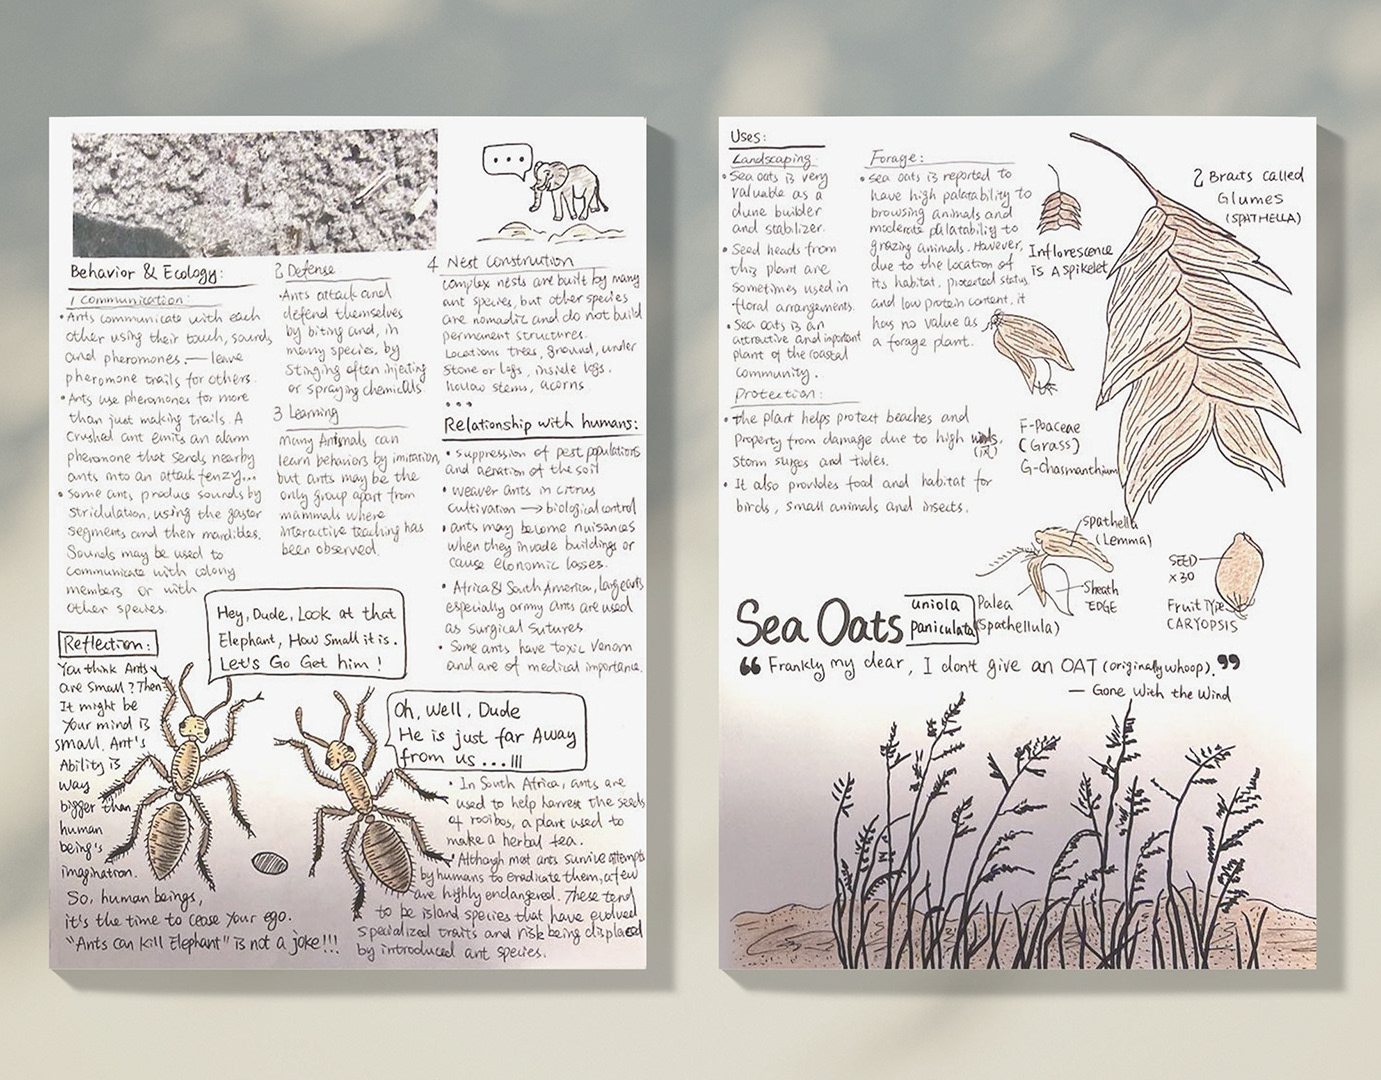 Behavior & Ecology:
1 Communication:
• Ants communicate with each
other using their touch, sounds
and pheromones. — leave
pheromone trails for others.
• Ants use pheromones for more
than just making trails. A
Crushed ant emits an alarm
pheromone that sends nearby
ants into an attack fenzy...
• Some ants produce sounds by
stridulation, using the gaster
segments and their mardibles.
Sounds may be used to
communicate with colony
members or with
other species.
2 Defense
• Ants attack and
defend themselves
by biting and, in
many species, by
stinging often injecting
or spraying chemicals
3 Learning
many Animals can
learn behaviors by imitation,
but ants may be the
only group apart from
mammals where
interactive teaching has
been observed.
...
4 Nest construction
complex nests are built by many
ant species, but other species
are nomadic and do not build
permanent structures.
Locations: trees, ground, under
stone or logs, inside logs.
hollow stems, acorns.
...
Relationship with humans:
• suppression of pest populations
and aeration of the soil
• weaver ants in citrus
cultivation → biological control
• ants may become nuisances
when they invade buildings or
cause elonomic losses.
• Africa & South America, large ants
especially army ants are used
as surgical sutures
• Some ants have toxic venom
and are of medical importance.
• In South Africa, ants are
used to help harvest the seeds
of rooibos, a plant used to
make a herbal tea.
• Although most ants survive attempts
by humans to eradicate them, a few
are highly endangered. These tend
to be island species that have evolved
specialized traits and risk being displaced
by introduced ant species.
Hey, Dude, Look at that
Elephant, How Small it is.
Let's Go Get him !
Oh, well, Dude
He is just far Away
from us ...!!!
Reflection:
You think Ants
are small? Then
It might be
Your mind is
small. Ant's
Ability is
way
bigger than
human
being's
imagination.
So, human beings,
it's the time to cease Your ego.
"Ants can kill Elephant" is not a joke!!!
Uses:
Landscaping:
• Sea oats is very
valuable as a
dune builder
and stabilizer.
• Seed heads from
this plant are
sometimes used in
floral arrangements.
• Sea oats is an
attractive and important
plant of the coastal
community.
Forage:
• Sea oats is reported to
have high palatability to
browsing animals and
moderate palatability to
grazing animals. However,
due to the location of
its habitat, protected status
and low protein content, it
has no value as
a forage plant.
Protection:
• The plant helps protect beaches and
Property from damage due to high
storm surges and tides.
• It also provides food and habitat for
birds, small animals and insects.
Inflorescence
is A spikelet
2 Bracts called
Glumes
(SPATHELLA)
F-Poaceae
(Grass)
G-Chasmanthium
spathella
(Lemma)
Sheath
EDGE
Palea
(Spathellula)
SEED
x30
Fruit Type
CARYOPSIS
Sea Oats
uniola
paniculata
“ Frankly my dear, I don't give an OAT (originally whoop). ”
— Gone With the Wind